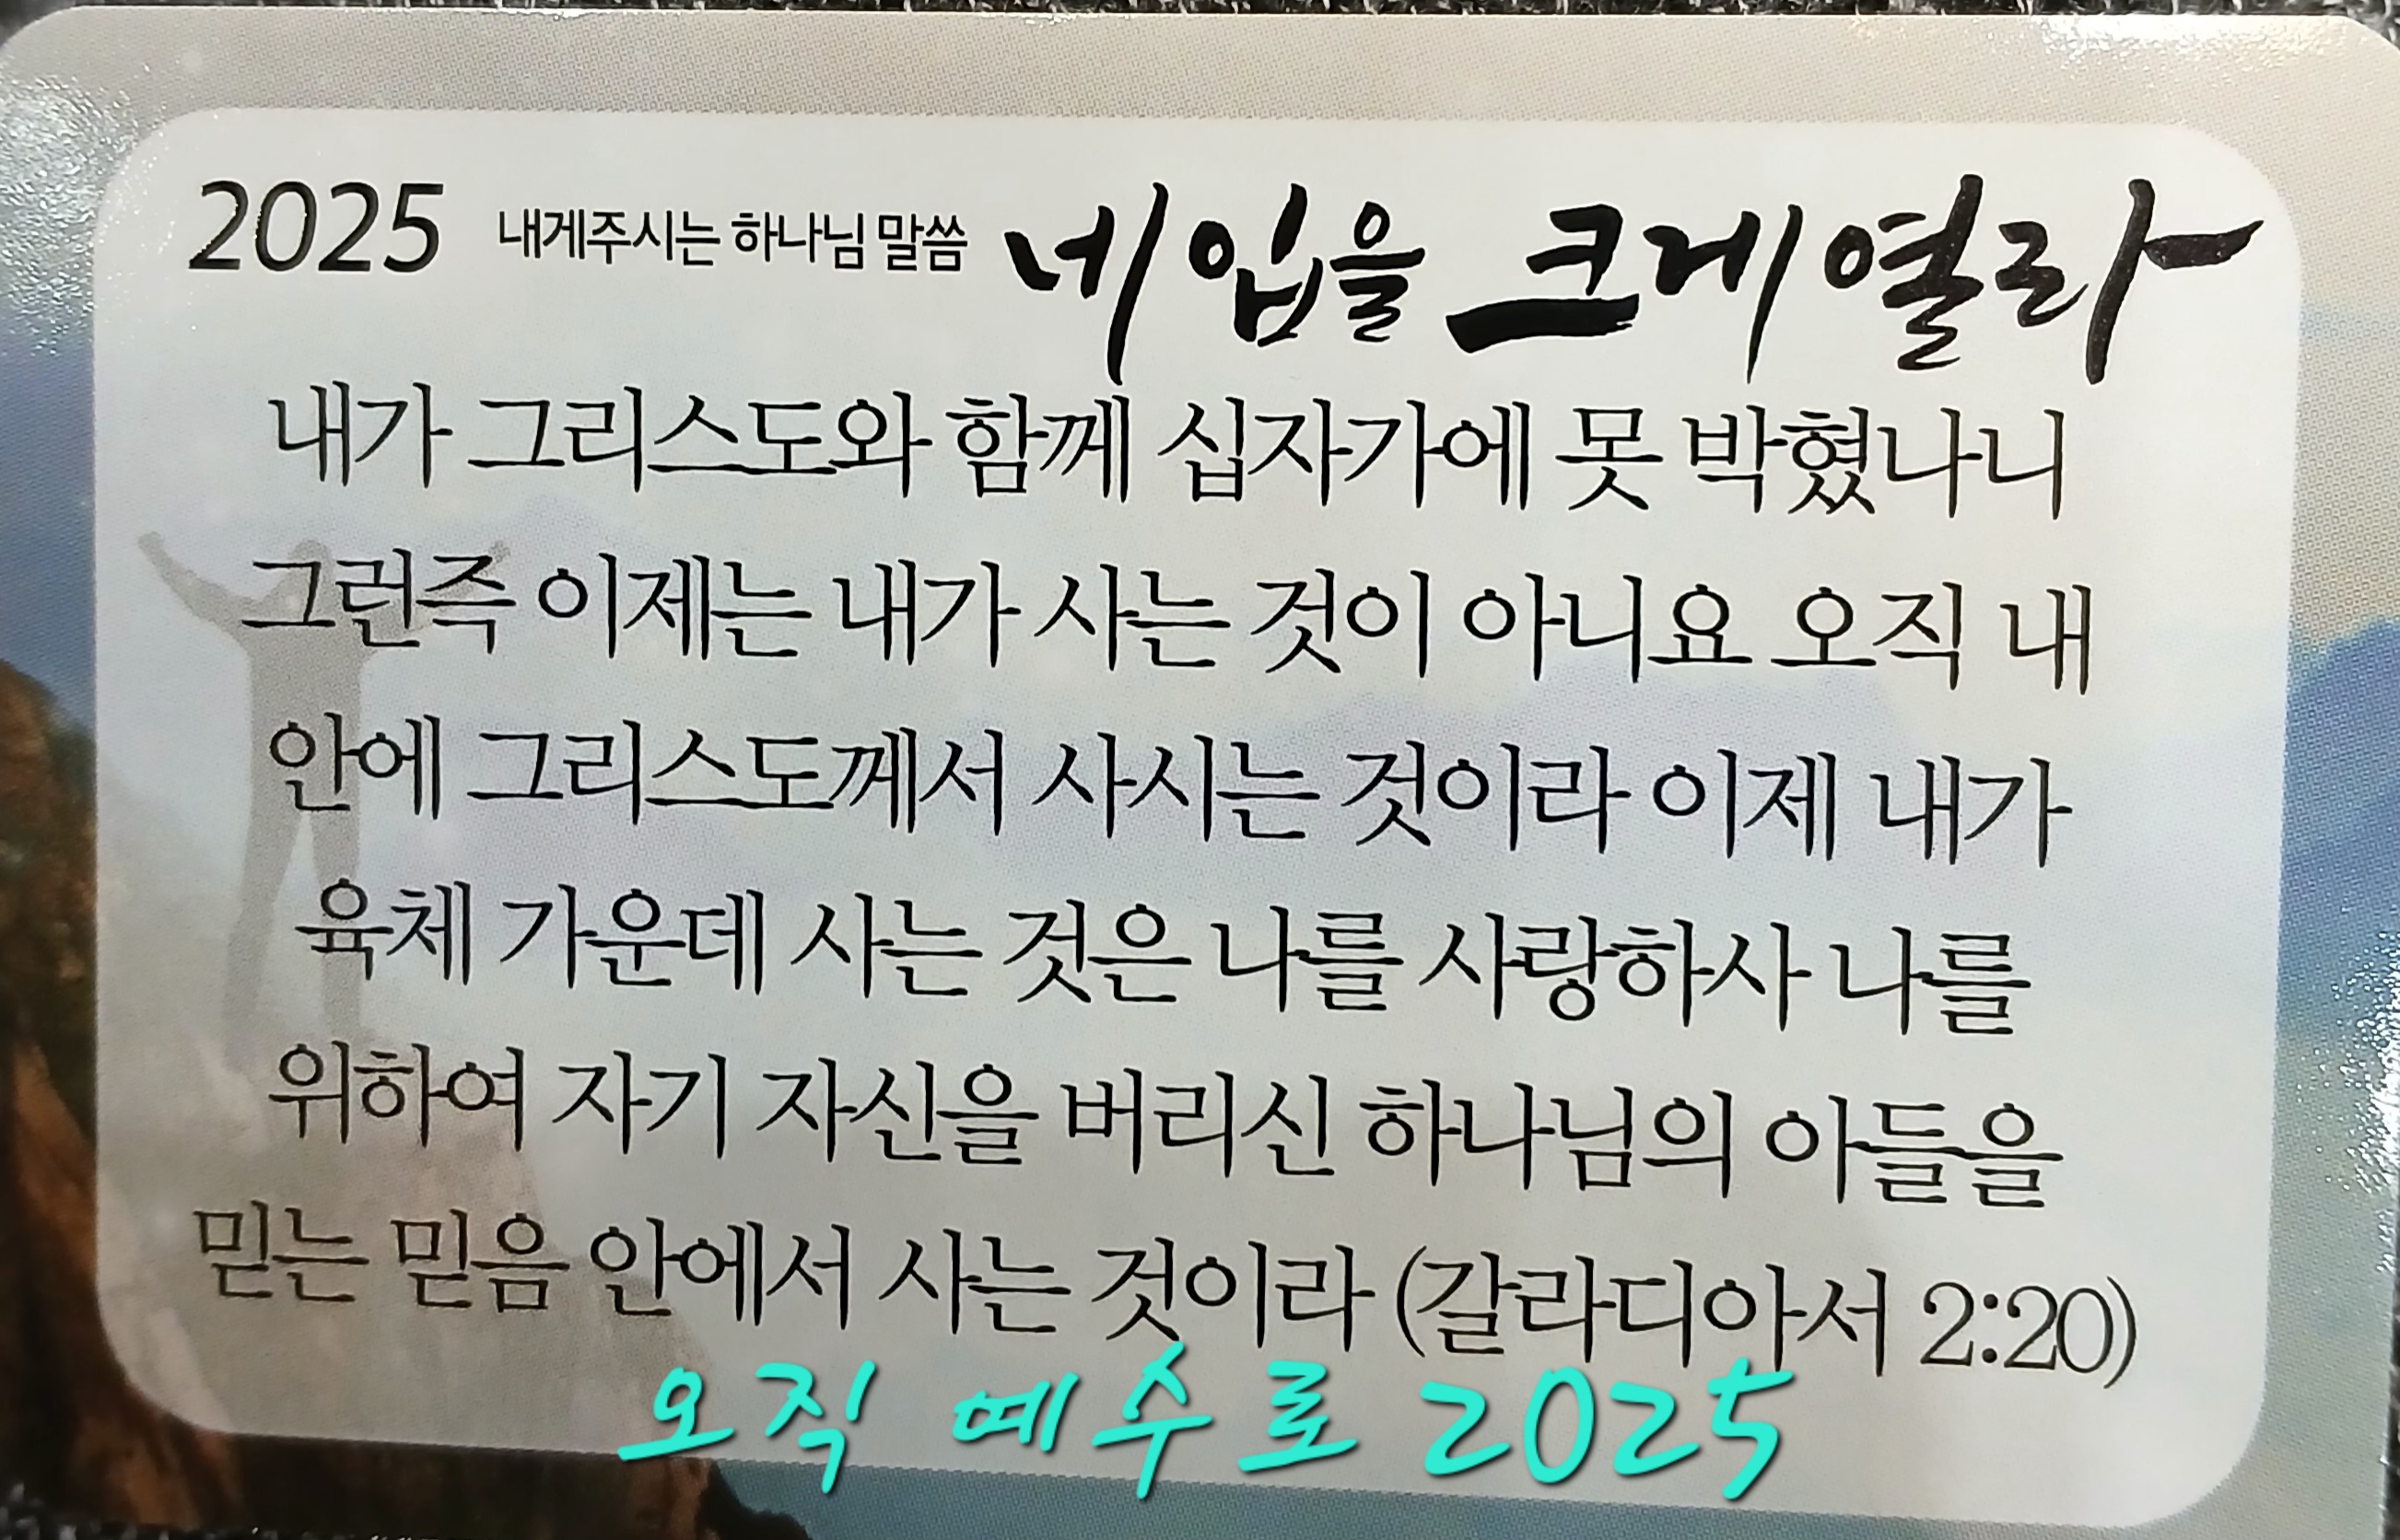 2025 내게주시는 하나님 말씀 네 입을 크게 열라
내가 그리스도와 함께 십자가에 못 박혔나니
그런즉 이제는 내가 사는 것이 아니요 오직 내
안에 그리스도께서 사시는 것이라 이제 내가
육체 가운데 사는 것은 나를 사랑하사 나를
위하여 자기 자신을 버리신 하나님의 아들을
믿는 믿음 안에서 사는 것이라 (갈라디아서 2:20)
오직 예수로 2025